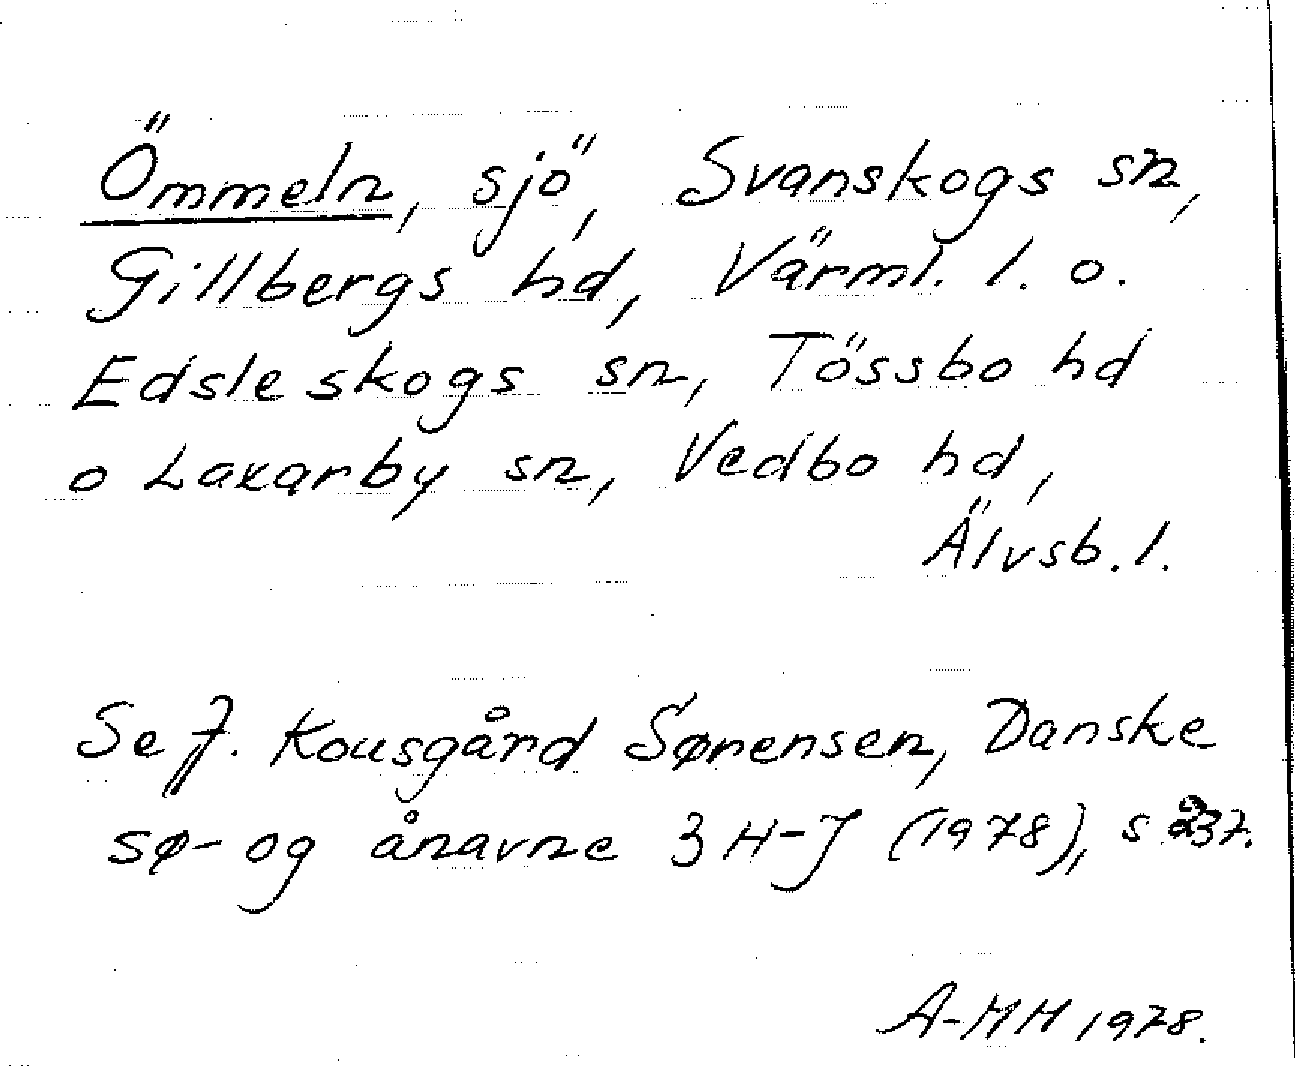 Ömmeln, sjö, Svanskogs sn,
Gillbergs hd, Värml. l. o.
Edsleskogs sn, Tössbo hd
o Laxarby sn, Vedbo hd,
Älvsb. l.
Se J. Kousgård Sørensen, Danske
sø- og ånavne 3 H-J (1978), s 237.
A-MH 1978.